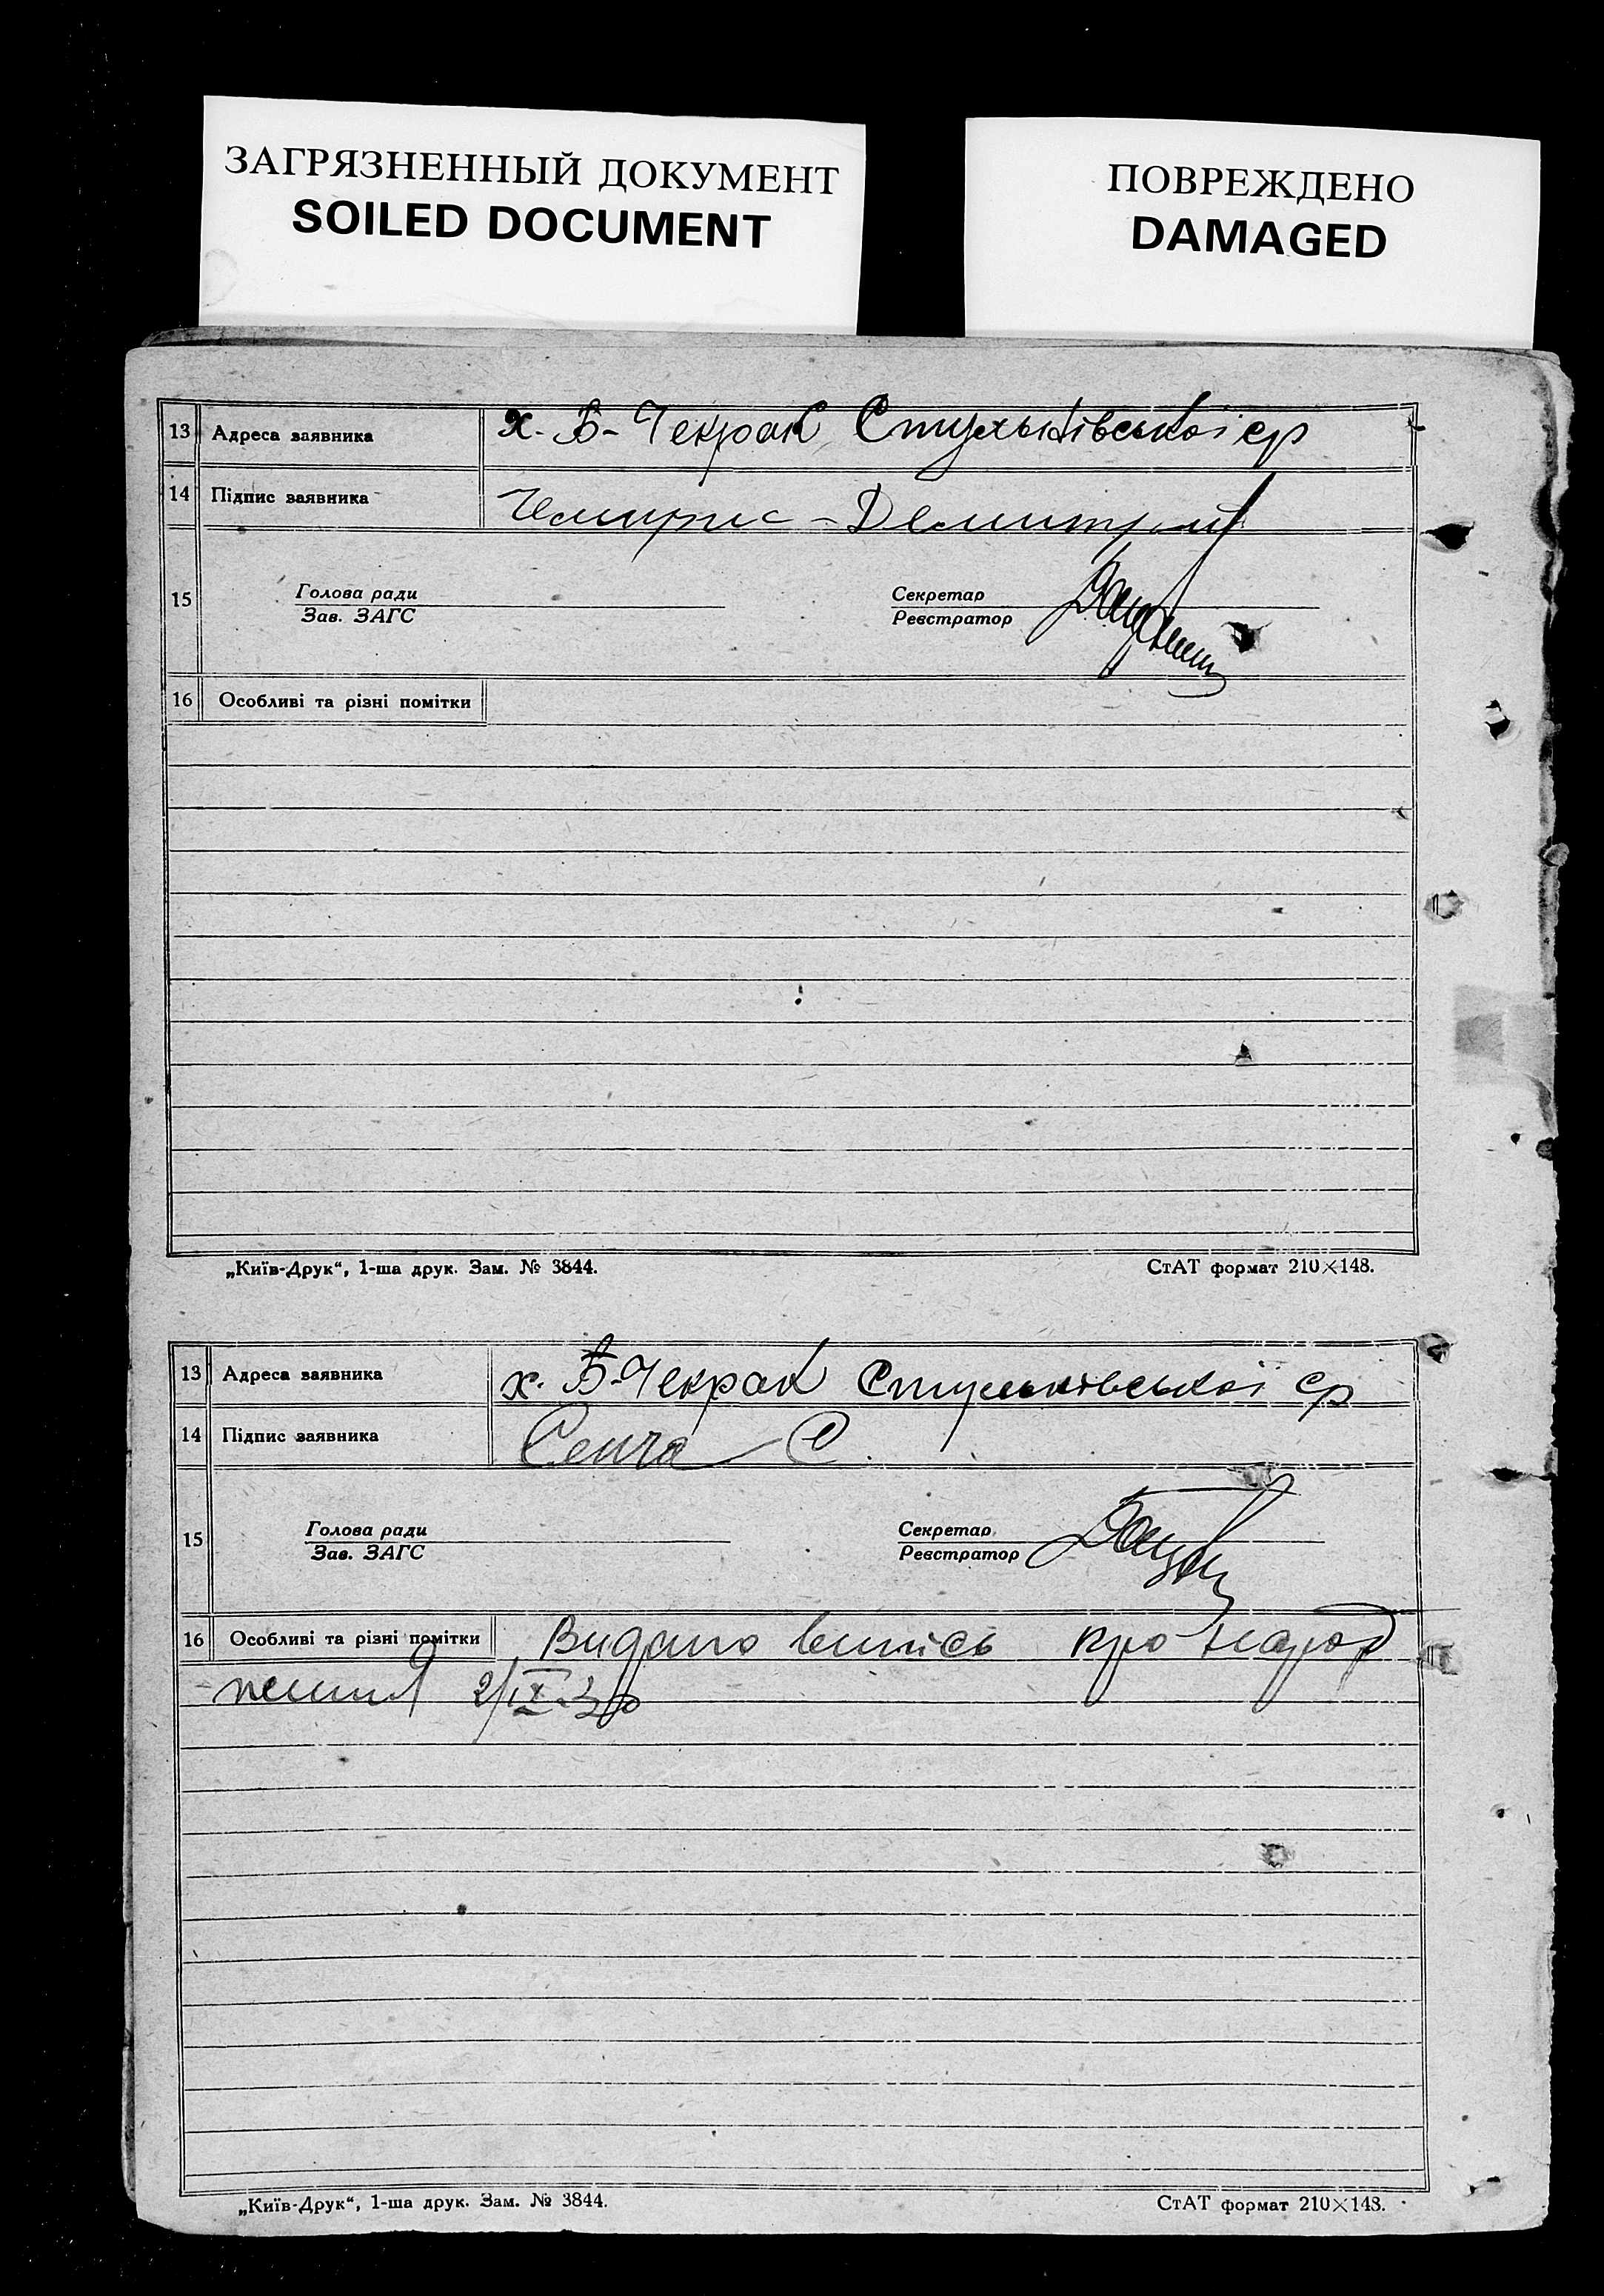 ЗАГРЯЗНЕННЫЙ ДОКУМЕНТ
SOILED DOCUMENT
ПОВРЕЖДЕНО
DAMAGED
13 Адреса заявника х. Б-Чекрак Стульнівської ср
14 Підпис заявника
15 Голова ради Секретар
Зав. ЗАГС Реєстратор
16 Особливі та різні помітки
„Київ-Друк“, 1-ша друк. Зам. № 3844. СтАТ формат 210×148.
13 Адреса заявника х. Б-Чекрак Стульнівської ср
14 Підпис заявника С.
15 Голова ради Секретар
Зав. ЗАГС Реєстратор
16 Особливі та різні помітки Видано випись про народ
ження 2/IX-30
„Київ-Друк“, 1-ша друк. Зам. № 3844. СтАТ формат 210×148.